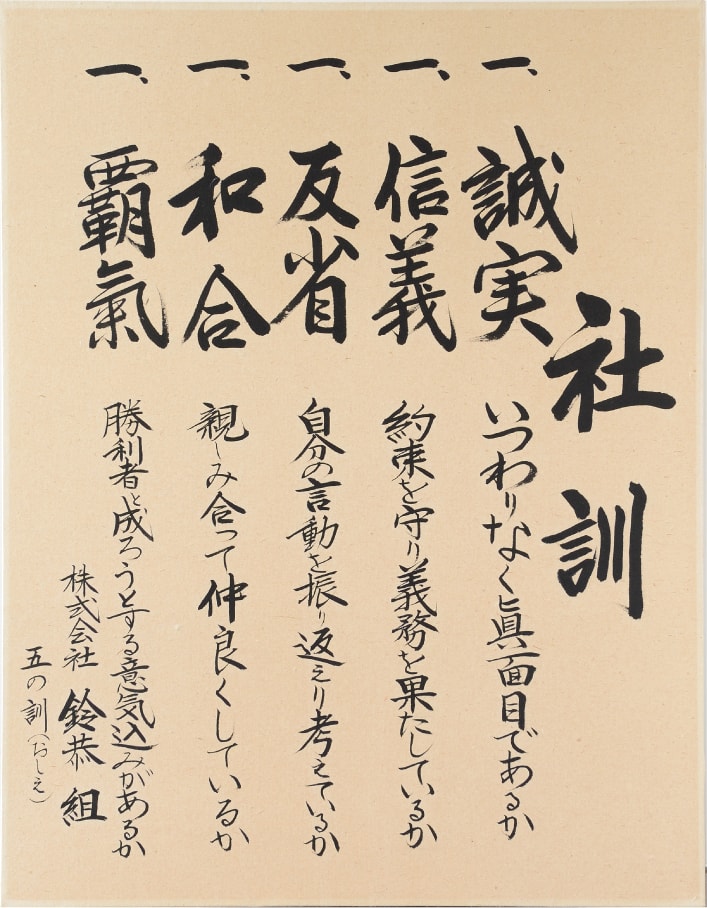 社訓
一、誠実 いつわりなく眞面目であるか
一、信義 約束を守り義務を果たしているか
一、反省 自分の言動を振り返えり考えているか
一、和合 親しみ合って仲良くしているか
一、覇氣 勝利者と成ろうとする意気込みがあるか
株式会社 鈴恭組
五の訓(おしえ)